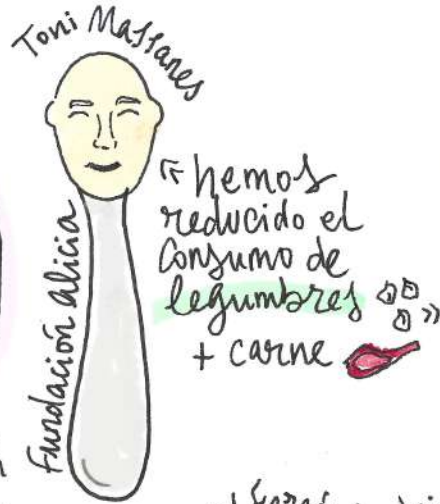 Toni Massanes
Fundación alicia
"hemos
reducido el
consumo de
legumbres
+ carne"